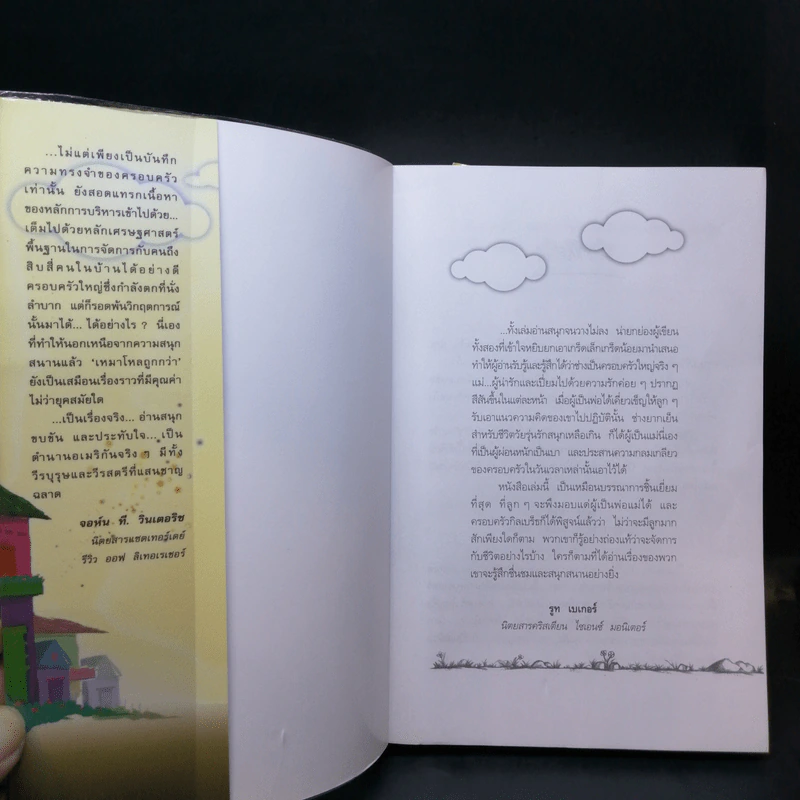 ...ไม่แต่เพียงเป็นบันทึก
ความทรงจำของครอบครัว
เท่านั้น ยังสอดแทรกเนื้อหา
ของหลักการบริหารเข้าไปด้วย...
เต็มไปด้วยหลักเศรษฐศาสตร์
พื้นฐานในการจัดการกับคนถึง
สิบสี่คนในบ้านได้อย่างดี
ครอบครัวใหญ่ซึ่งกำลังตกที่นั่ง
ลำบาก แต่ก็รอดพ้นวิกฤตการณ์
นั้นมาได้... ได้อย่างไร ? นี่เอง
ที่ทำให้นอกเหนือจากความสนุก
สนานแล้ว 'เหมาโหลถูกกว่า'
ยังเป็นเสมือนเรื่องราวที่มีคุณค่า
ไม่ว่ายุคสมัยใด
...เป็นเรื่องจริง... อ่านสนุก
ขบขัน และประทับใจ... เป็น
ตำนานอเมริกันจริง ๆ มีทั้ง
วีรบุรุษและวีรสตรีที่แสนชาญ
ฉลาด
จอห์น ที. วินเตอริช
นิตยสารแซตเทอร์เดย์
รีวิว ออฟ ลิเทอเรเชอร์
...ทั้งเล่มอ่านสนุกจนวางไม่ลง น่ายกย่องผู้เขียน
ทั้งสองที่เข้าใจหยิบยกเอาเกร็ดเล็กเกร็ดน้อยมานำเสนอ
ทำให้ผู้อ่านรับรู้และรู้สึกได้ว่าช่างเป็นครอบครัวใหญ่จริง ๆ
แม่...ผู้น่ารักและเปี่ยมไปด้วยความรักค่อย ๆ ปรากฏ
สีสันขึ้นในแต่ละหน้า เมื่อผู้เป็นพ่อได้เคี่ยวเข็ญให้ลูก ๆ
รับเอาแนวความคิดของเขาไปปฏิบัตินั้น ช่างยากเย็น
สำหรับชีวิตวัยรุ่นรักสนุกเหลือเกิน ก็ได้ผู้เป็นแม่นี่เอง
ที่เป็นผู้ผ่อนหนักเป็นเบา และประสานความกลมเกลียว
ของครอบครัวในวันเวลาเหล่านั้นเอาไว้ได้
หนังสือเล่มนี้ เป็นเหมือนบรรณาการชิ้นเยี่ยม
ที่สุด ที่ลูก ๆ จะพึงมอบแด่ผู้เป็นพ่อแม่ได้ และ
ครอบครัวกิลเบร็ธก็ได้พิสูจน์แล้วว่า ไม่ว่าจะมีลูกมาก
สักเพียงใดก็ตาม พวกเขาก็รู้อย่างถ่องแท้ว่าจะจัดการ
กับชีวิตอย่างไรบ้าง ใครก็ตามที่ได้อ่านเรื่องของพวก
เขาจะรู้สึกชื่นชมและสนุกสนานอย่างยิ่ง
รูท เบเกอร์
นิตยสารคริสเตียน ไซเอนซ์ มอนิเตอร์